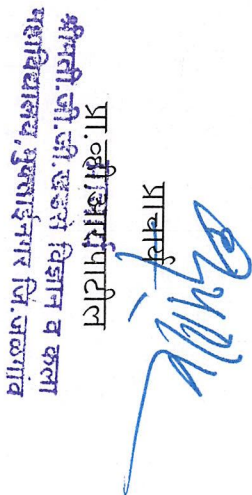 प्राचार्य
प्रा.व्ही.आर.पाटील
श्रीमती.जी.जी.खडसे विज्ञान व कला
महाविद्यालय,मुक्ताईनगर जि.जळगांव